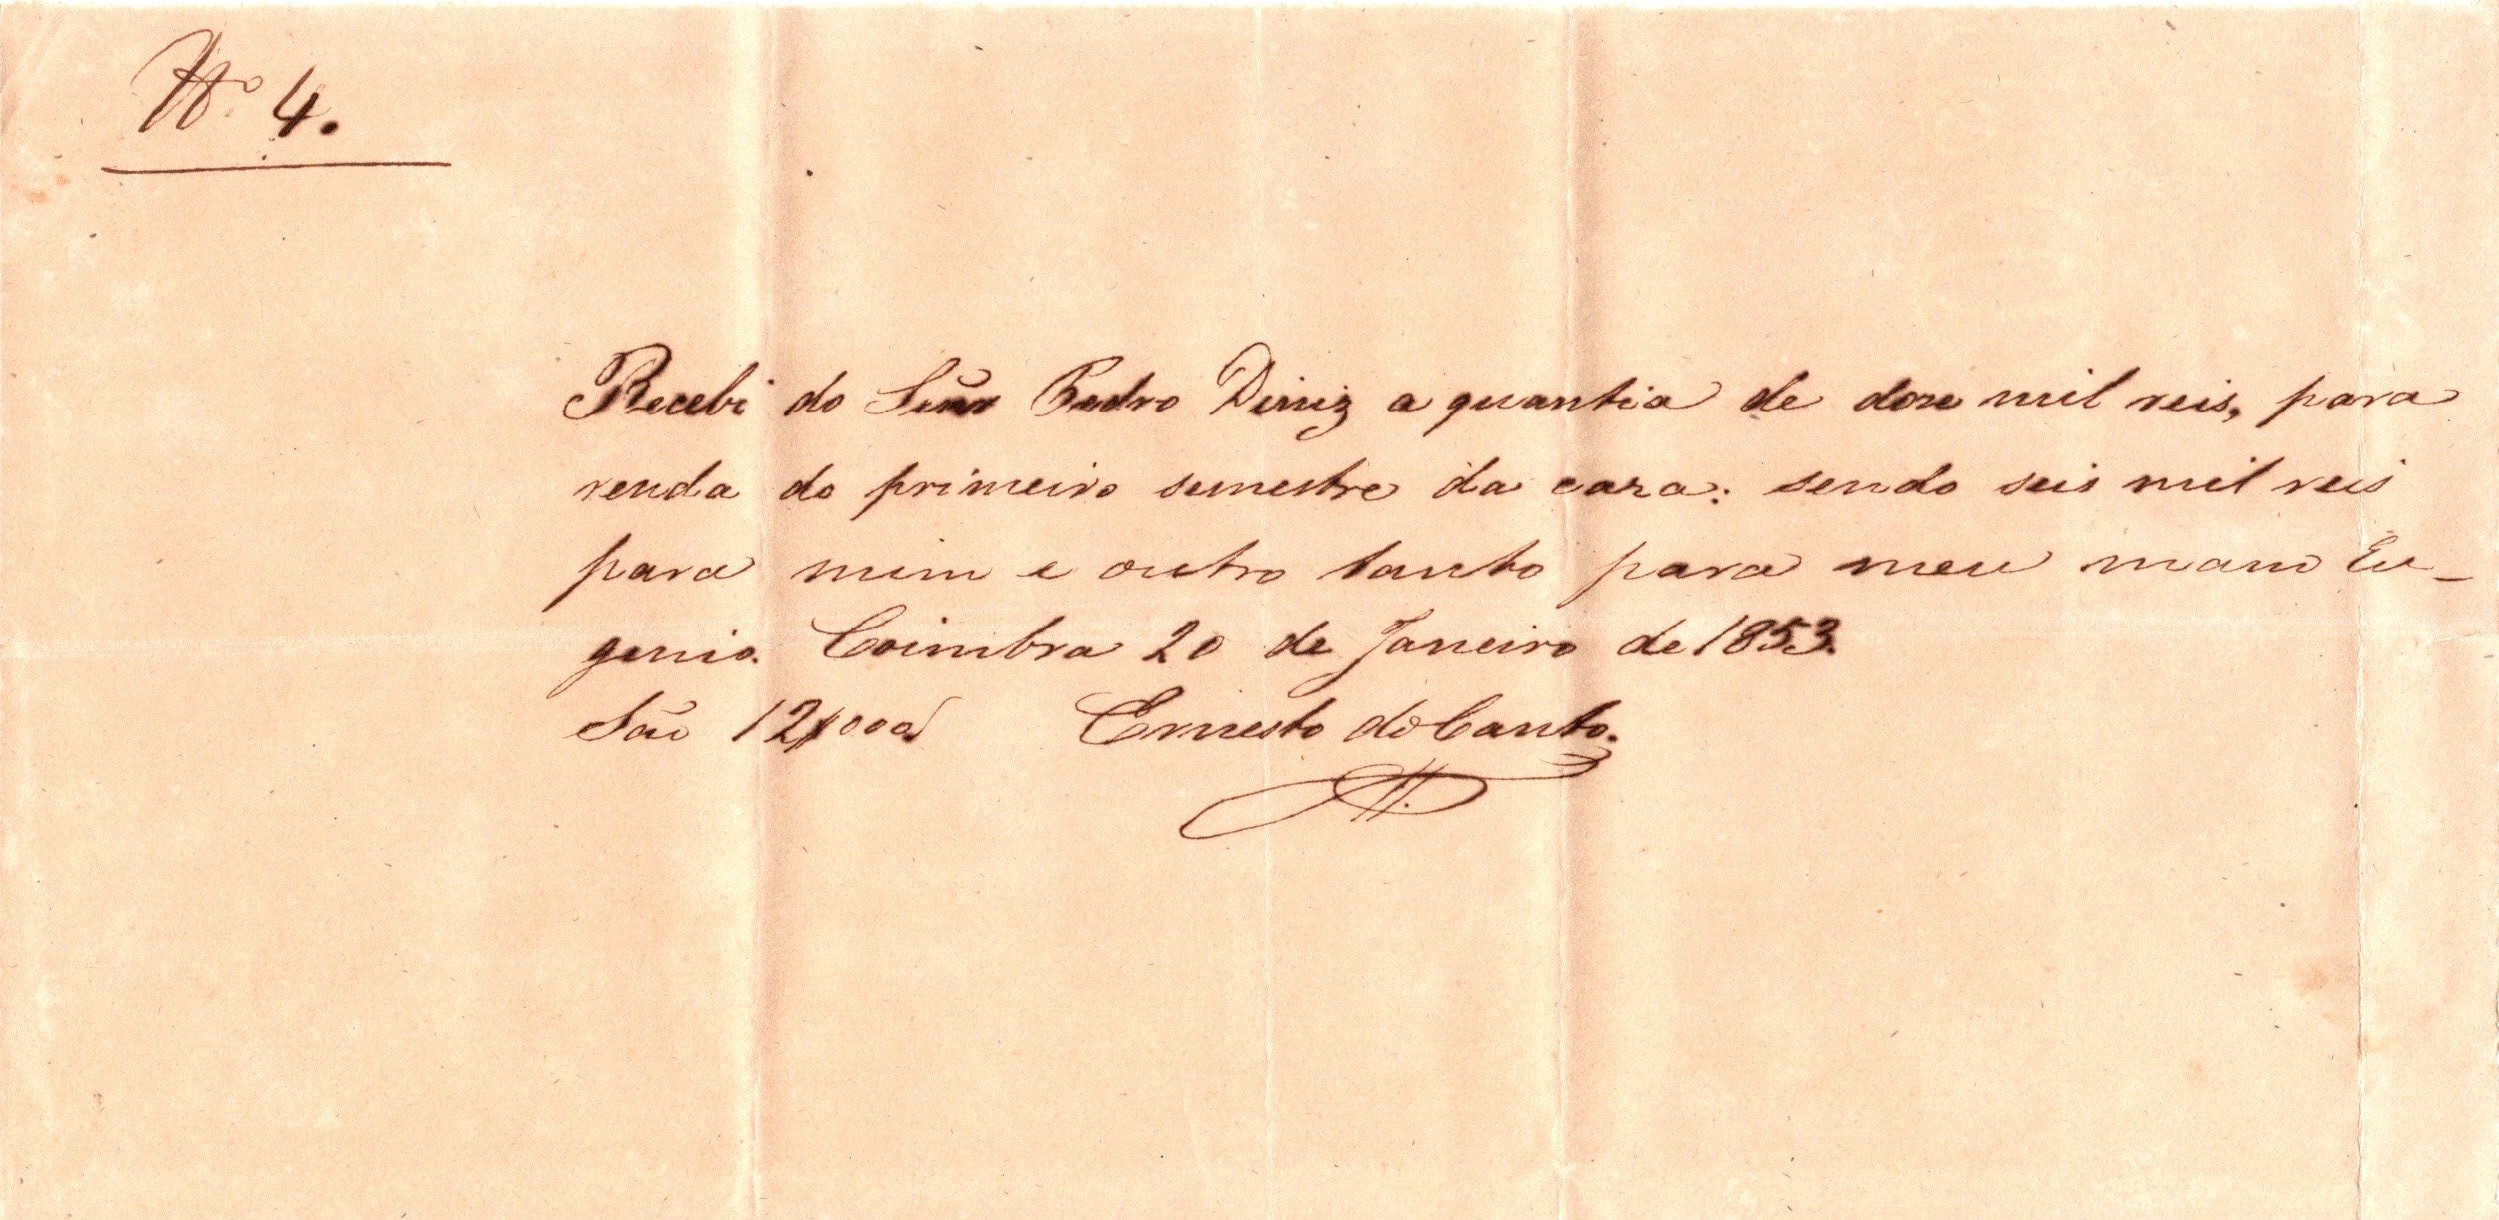 Nº 4.
Recebi do Senr Pedro Diniz a quantia de doze mil reis, para
renda do primeiro semestre da caza: sendo seis mil reis
para mim e outro tanto para meu mano Eu-
genio. Coimbra 20 de Janeiro de 1853.
São 12$000
Ernesto do Canto.